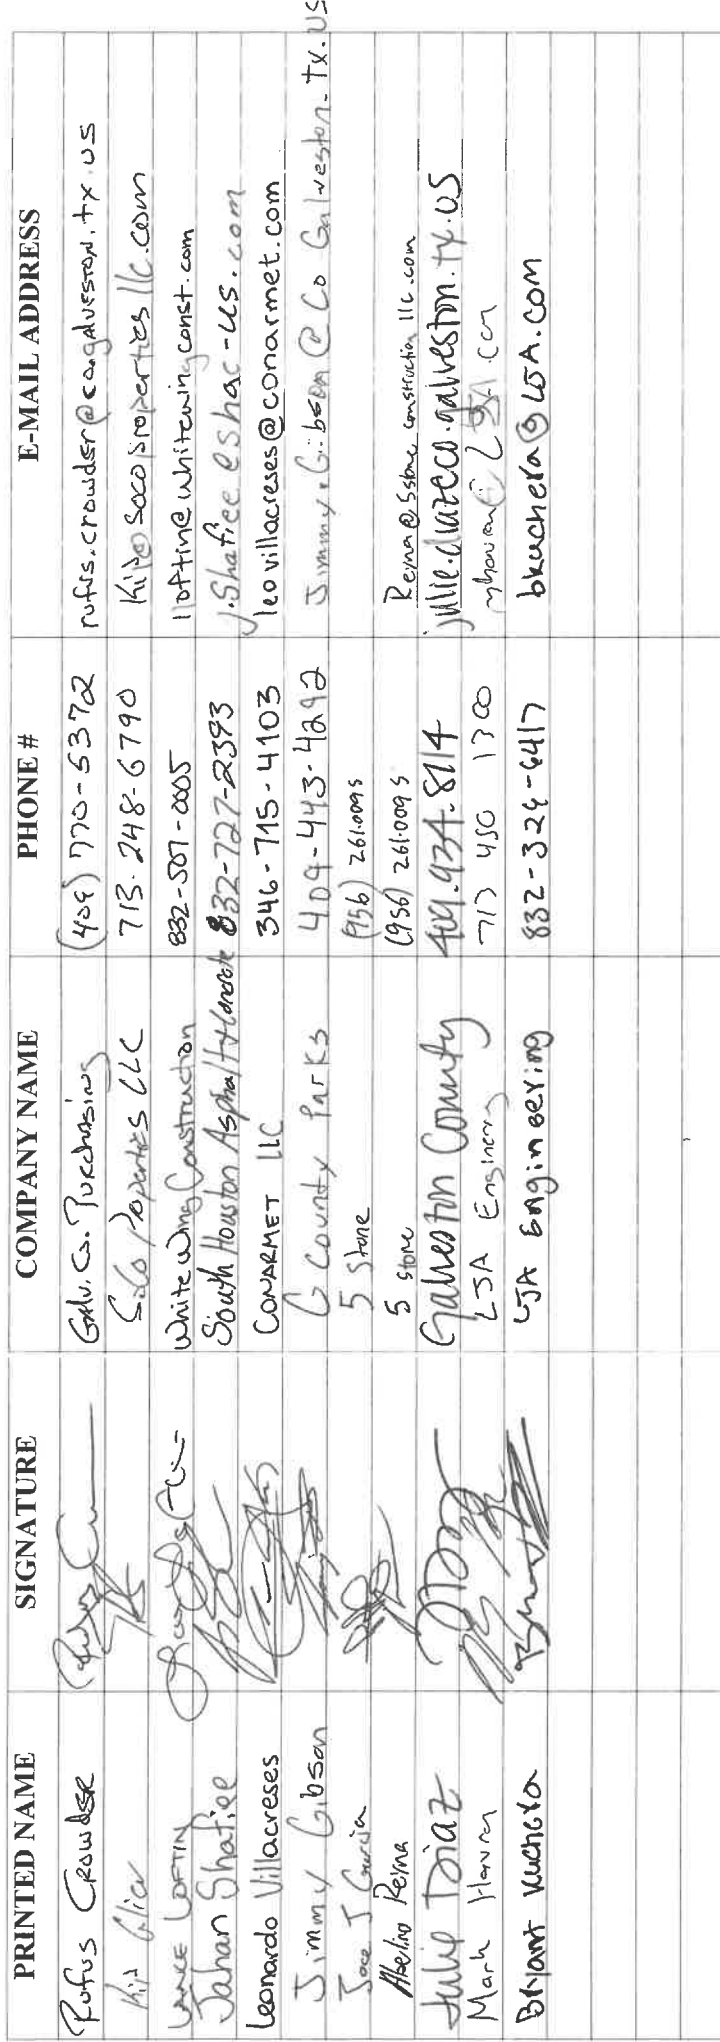 PRINTED NAME SIGNATURE COMPANY NAME PHONE # E-MAIL ADDRESS
Rufus Crowder Galv. Co. Purchasing (409) 770-5372 rufus.crowder@co.galveston.tx.us
Kip SoCo Properties LLC 713-248-6790 Kip@socopropertiesllc.com
LANCE LOFTIN White Wing Construction 832-507-0005 lloftin@whitewingconst.com
Jahan Shafiee South Houston Asphalt & Concrete 832-727-2393 j.shafiee@shac-us.com
Leonardo Villacreses CONARMET LLC 346-715-4103 leovillacreses@conarmet.com
Jimmy Gibson G County Parks 409-443-4292 Jimmy.Gibson@Co Galveston.tx.us
Jose J Garcia 5 Stone (956) 261.0095
Abelino Reyna 5 stone (956) 261.0095 Reyna@5stone constructionllc.com
Julie Diaz Galveston County 409.934.8114 julie.diaz@co.galveston.tx.us
Mark LJA Engineering 713 450 1300
Bryant Kuchera LJA Engineering 832-326-6417 bkuchera@LJA.com